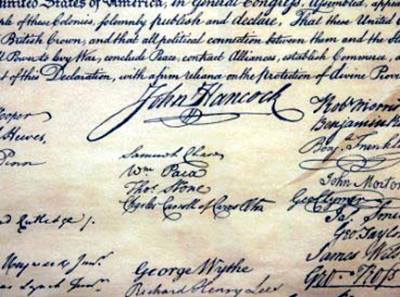 United States of America, in General Congress, Assembled,
of these Colonies, solemnly publish and declare, That these United
British Crown, and that all political connection between them and the
Power to levy War, conclude Peace, contract Alliances, establish Commerce,
of this Declaration, with a firm reliance on the protection of divine
John Hancock
Robt Morris
Hooper
Benjamin
Hewes,
Benj. Franklin
Penn
Samuel Chase
John Morton
Wm Paca
Geo Clymer
Thos Stone
Jas. Smith
Charles Carroll of Carrollton
Geo. Taylor
Rutledge
James
George Wythe
Geo. Ross
Heyward Junr
Richard Henry Lee
Lynch Junr